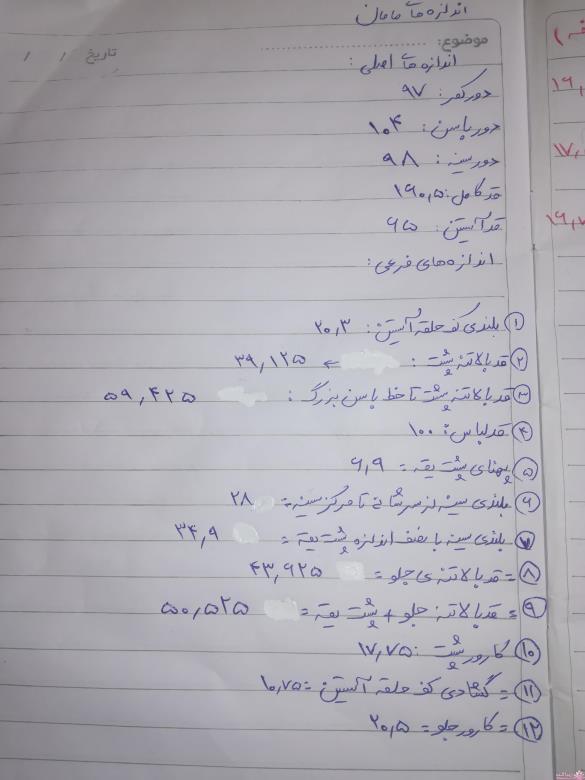 اندازه های مامان
موضوع:
تاریخ / /
اندازه های اصلی:
دور کمر: ۹۷
دور باسن: ۱۰۴
دور سینه: ۹۸
قد کامل: ۱۶۰٫۵
قد آستین: ۶۵
اندازه های فرعی:
۱ بلندی کف حلقه آستین: ۲۰٫۳
۲ قد بالاتنه پشت: ← ۳۹٫۱۲۵
۳ قد بالاتنه پشت تا خط باسن بزرگ: ۵۹٫۴۲۵
۴ قد لباس: ۱۰۰
۵ پهنای پشت یقه = ۶٫۹
۶ بلندی سینه از سرشانه تا مرکز سینه = ۲۸
۷ بلندی سینه با نصف اندازه پشت یقه = ۳۴٫۹
۸ = قد بالاتنه ی جلو = ۴۳٫۶۲۵
۹ = قد بالاتنه جلو + پشت یقه = ۵۰٫۵۲۵
۱۰ کارور پشت: ۱۷٫۷۵
۱۱ = گشادی کف حلقه آستین = ۱۰٫۷۵
۱۲ = کارور جلو = ۲۰٫۵